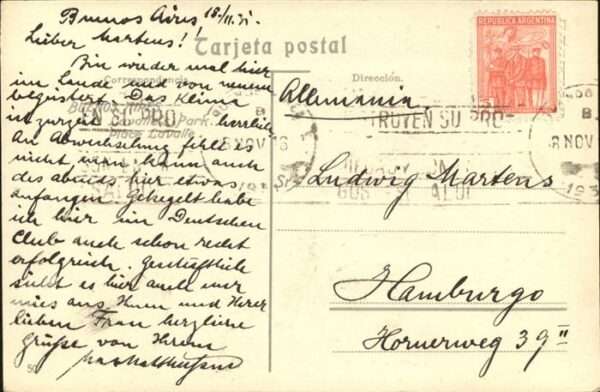 Buenos Aires 18./11.31.
Lieber Martens!!
Tarjeta postal
Correspondencia
Dirección.
REPUBLICA ARGENTINA
Bin wieder mal hier
im Lande und von neuem
begeistert. Das Klima
ist zurzeit herrlich
An Abwechselung fehlt es
nicht man kann auch
des abends hier etwas
anfangen. Gekegelt habe
ich hier im Deutschen
Club auch schon recht
erfolgreich. Geschäftlich
sieht es hier auch
mies aus Ihnen und Ihrer
lieben Frau herzliche
Grüsse von Ihrem
Buenos Aires
Plaza Lavalle
50
EN SU PRO
NOV
TRUYEN SU PRO
8 NOV
193
Allemania.
Sr. Ludwig Martens
Hamburgo
Hornerweg 39 II